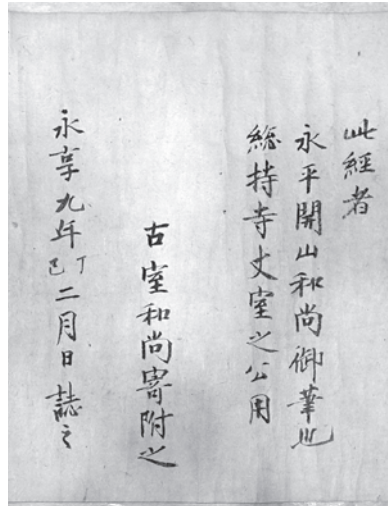 此經者
永平開山和尚御筆也
総持寺丈室之公用
古室和尚寄附之
永享九年丁巳二月日誌之